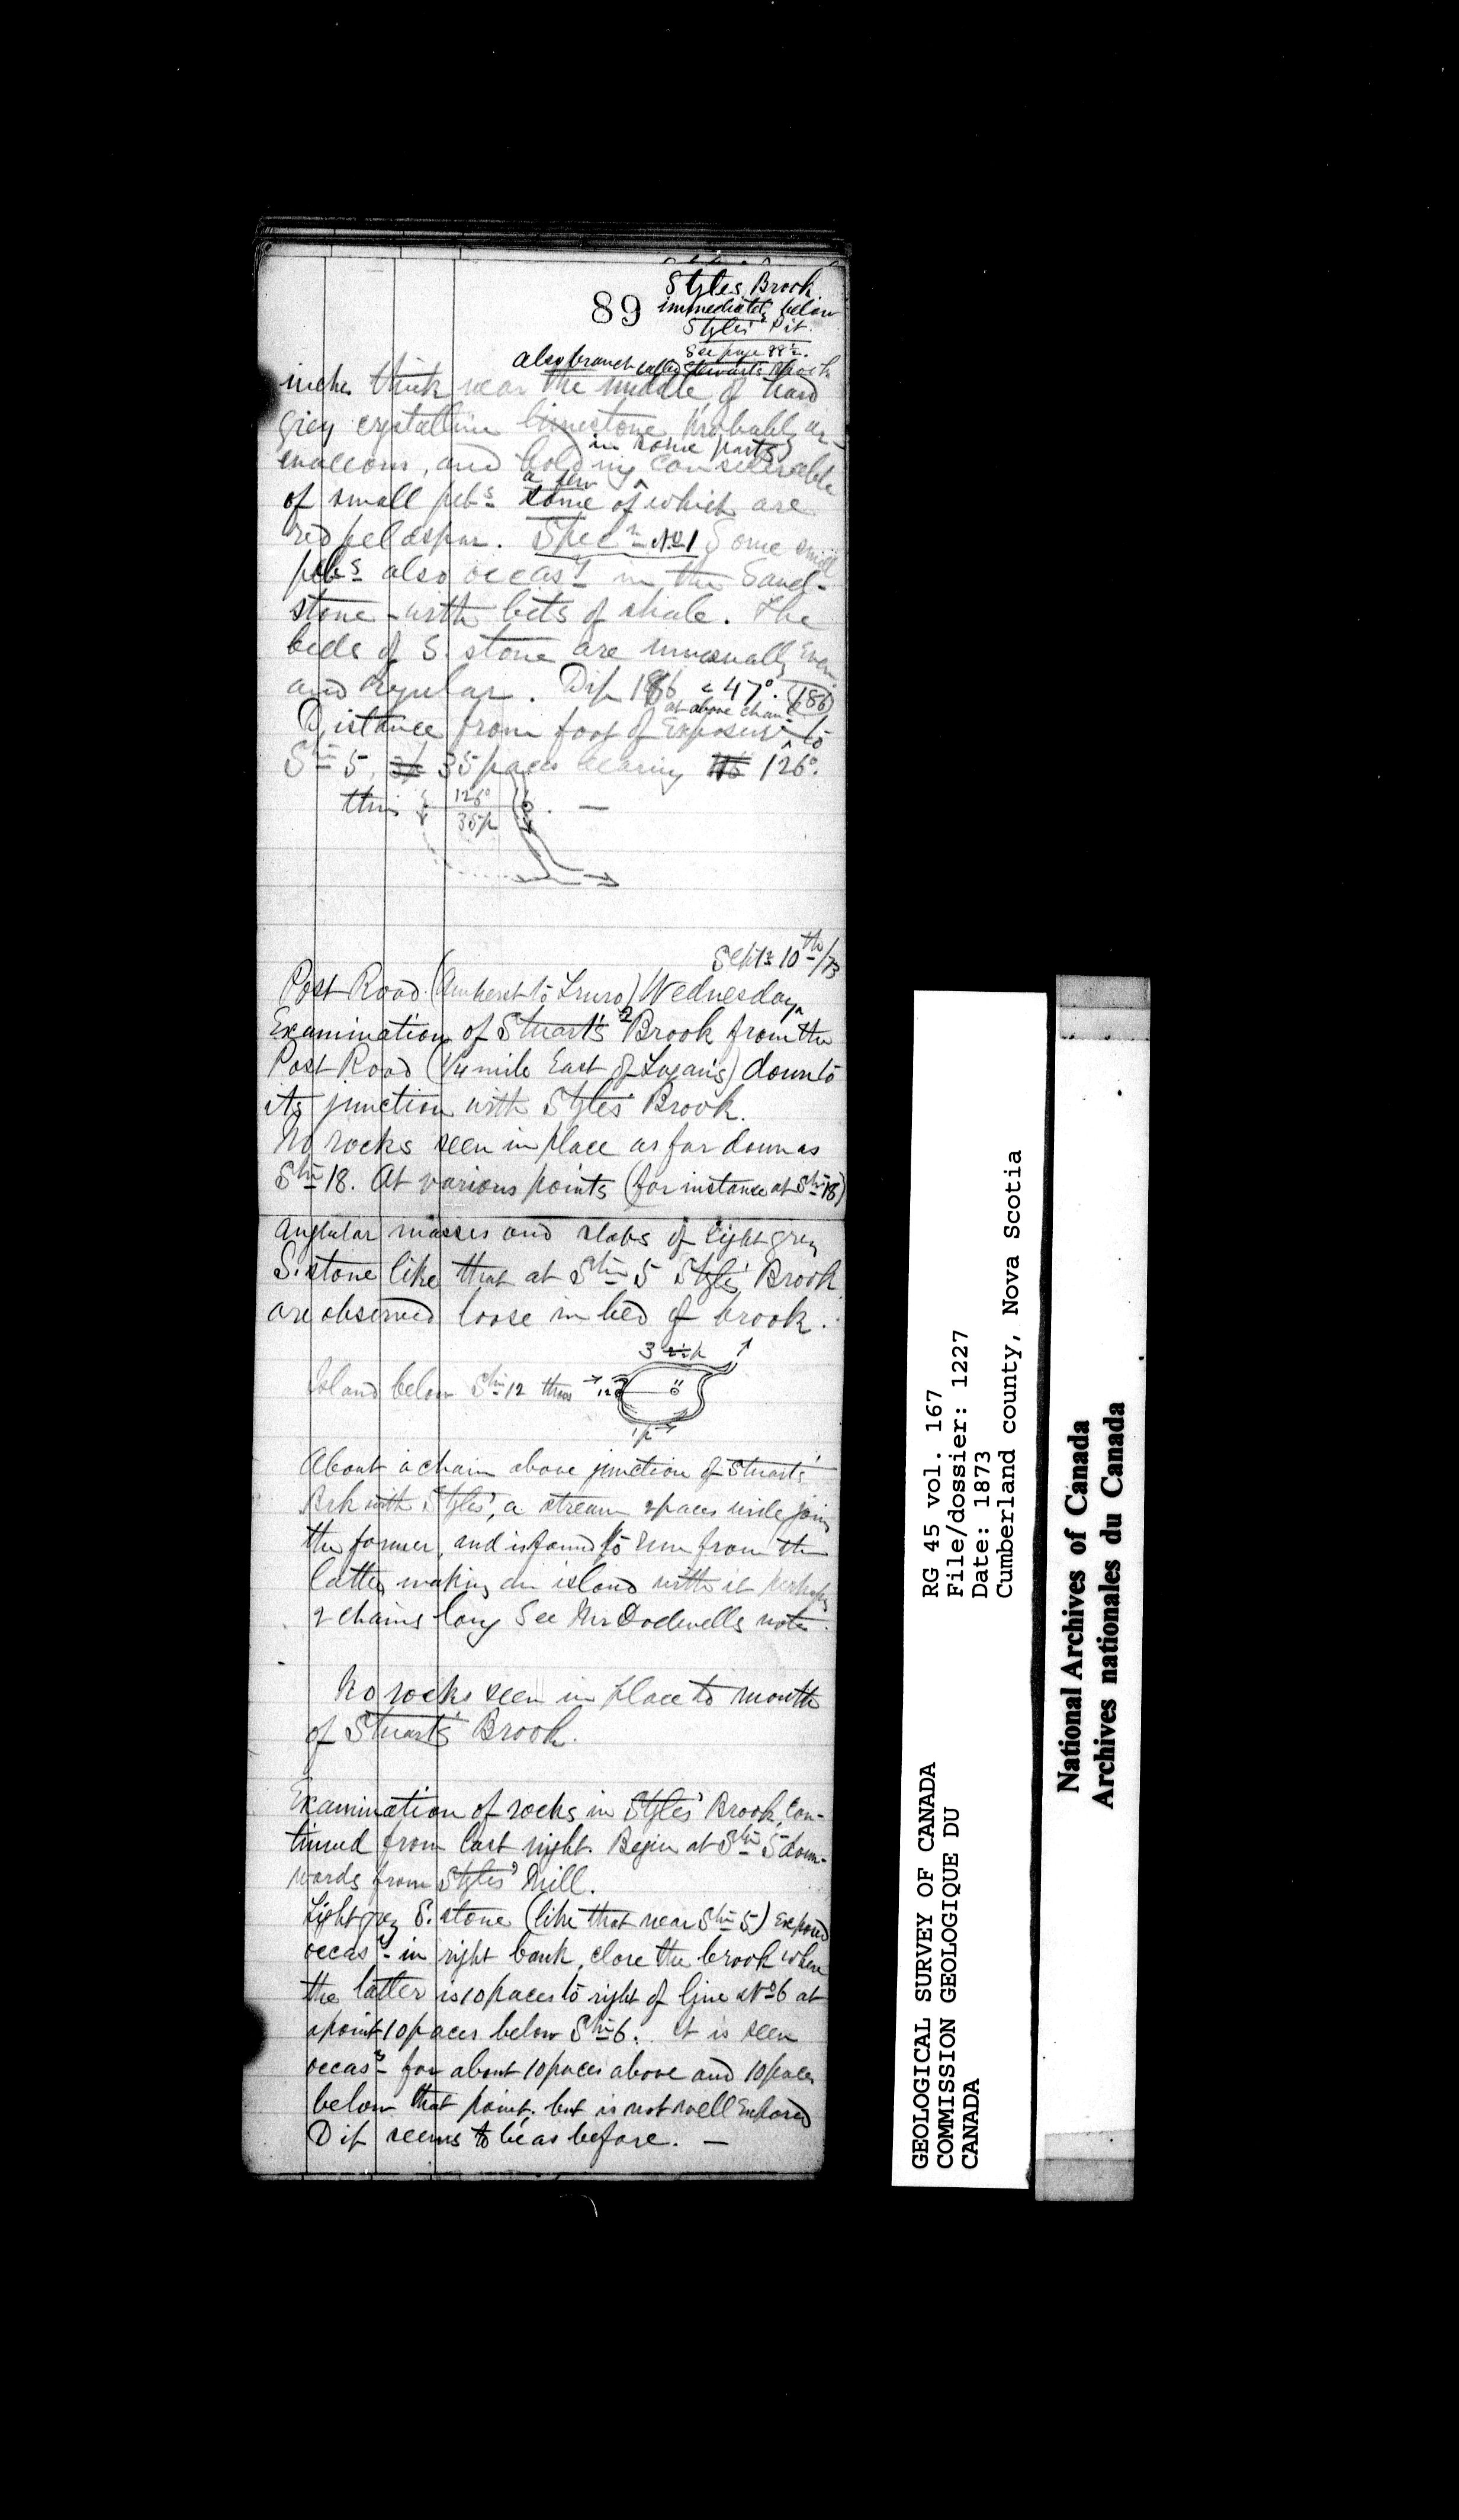 89
Styles Brook
immediately below
Styles' Pit.
See page 88½.
also branch called Stewart's Brook
inches thick near the middle, of hard
grey crystalline limestone, probably ar-
enaceous, and holding considerable
in some parts
of small pebs some of which are
a few
red feldspar. Specn No 1 Some small
pebs also occasy in the Sand-
stone - with bits of shale. The
beds of S. stone are unusually even
and regular. Dip 186 < 47°. 186
at above chan
Distance from foot of Exposure to
Stn 5, 35 paces bearing 126°.
thus 126° 35p
Septr 10th/73
Post Road (Amherst to Truro) Wednesday
Examination of Stuart's Brook from the
Post Road (1/4 mile East of Logan's) down to
its junction with Styles' Brook.
No rocks seen in place as far down as
Stn 18. At various points (for instance at Stn 18)
angular masses and slabs of light grey
S. stone like that at Stn 5 Styles' Brook
are observed loose in bed of brook.
3 2½p
Island below Stn 12 thus
1p
About a chain above junction of Stuarts'
Brk with Styles', a stream 2 paces wide joins
the former, and is found to run from the
latter making an island with it perhaps
2 chains long See Mr Dodwells note.
No rocks seen in place to mouth
of Stuarts' Brook.
Examination of rocks in Styles' Brook, con-
tinued from last night. Begin at Stn 5 down-
wards from Styles' Mill.
Light grey S. stone (like that near Stn 5) exposed
occasy in right bank, close the brook where
the latter is 10 paces to right of line No 6 at
a point 10 paces below Stn 6. It is seen
occasy for about 10 paces above and 10 paces
below that point, but is not well Exposed
Dip seems to be as before. —
GEOLOGICAL SURVEY OF CANADA
COMMISSION GEOLOGIQUE DU
CANADA
RG 45 vol. 167
File/dossier: 1227
Date: 1873
Cumberland county, Nova Scotia
National Archives of Canada
Archives nationales du Canada